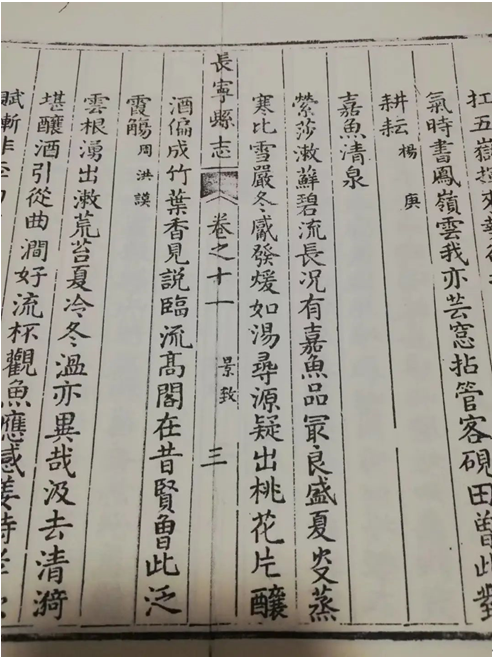 扛五嶽
氣時書鳳嶺雲我亦芸窓拈管客硯田曾此對
耕耘 楊庚
嘉魚清泉
縈莎漱蘚碧流長况有嘉魚品最良盛夏炎蒸
寒比雪嚴冬觱發煖如湯尋源疑出桃花片釀
長寧縣志 卷之十一 景致 三
酒偏成竹葉香見説臨流髙閣在昔賢曾此泛
霞觴 周洪謨
雲根湧出漱荒苔夏冷冬溫亦異哉汲去清漪
堪釀酒引從曲澗好流杯觀魚應感姜詩
賦